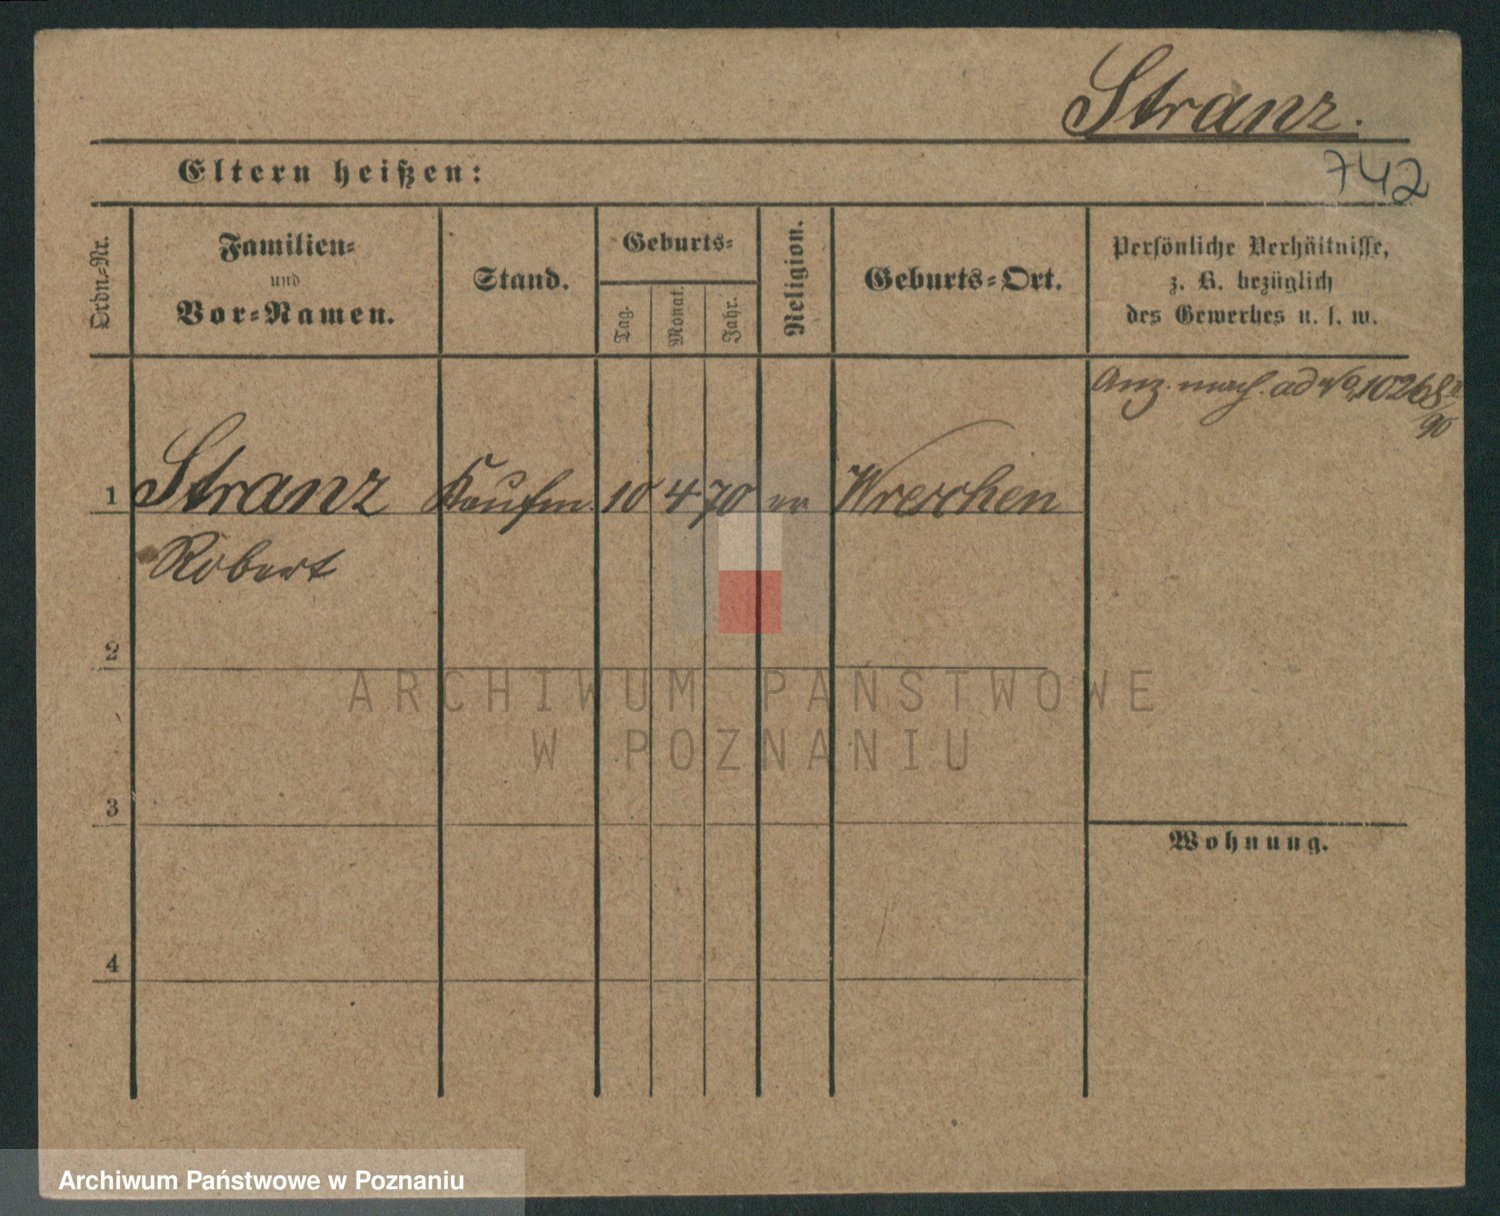 Stranz.
Eltern heißen:
742
Ordn.-Nr.
Familien-
und
Vor-Namen.
Stand.
Geburts-
Tag.
Monat.
Jahr.
Religion.
Geburts-Ort.
Persönliche Verhältnisse,
z. B. bezüglich
des Gewerbes u. s. w.
Anz. ad No 10268
90
1 Stranz Kaufm. 10 4 70 Wreschen
Robert
2
ARCHIWUM PAŃSTWOWE
W POZNANIU
3
Wohnung.
4
Archiwum Państwowe w Poznaniu